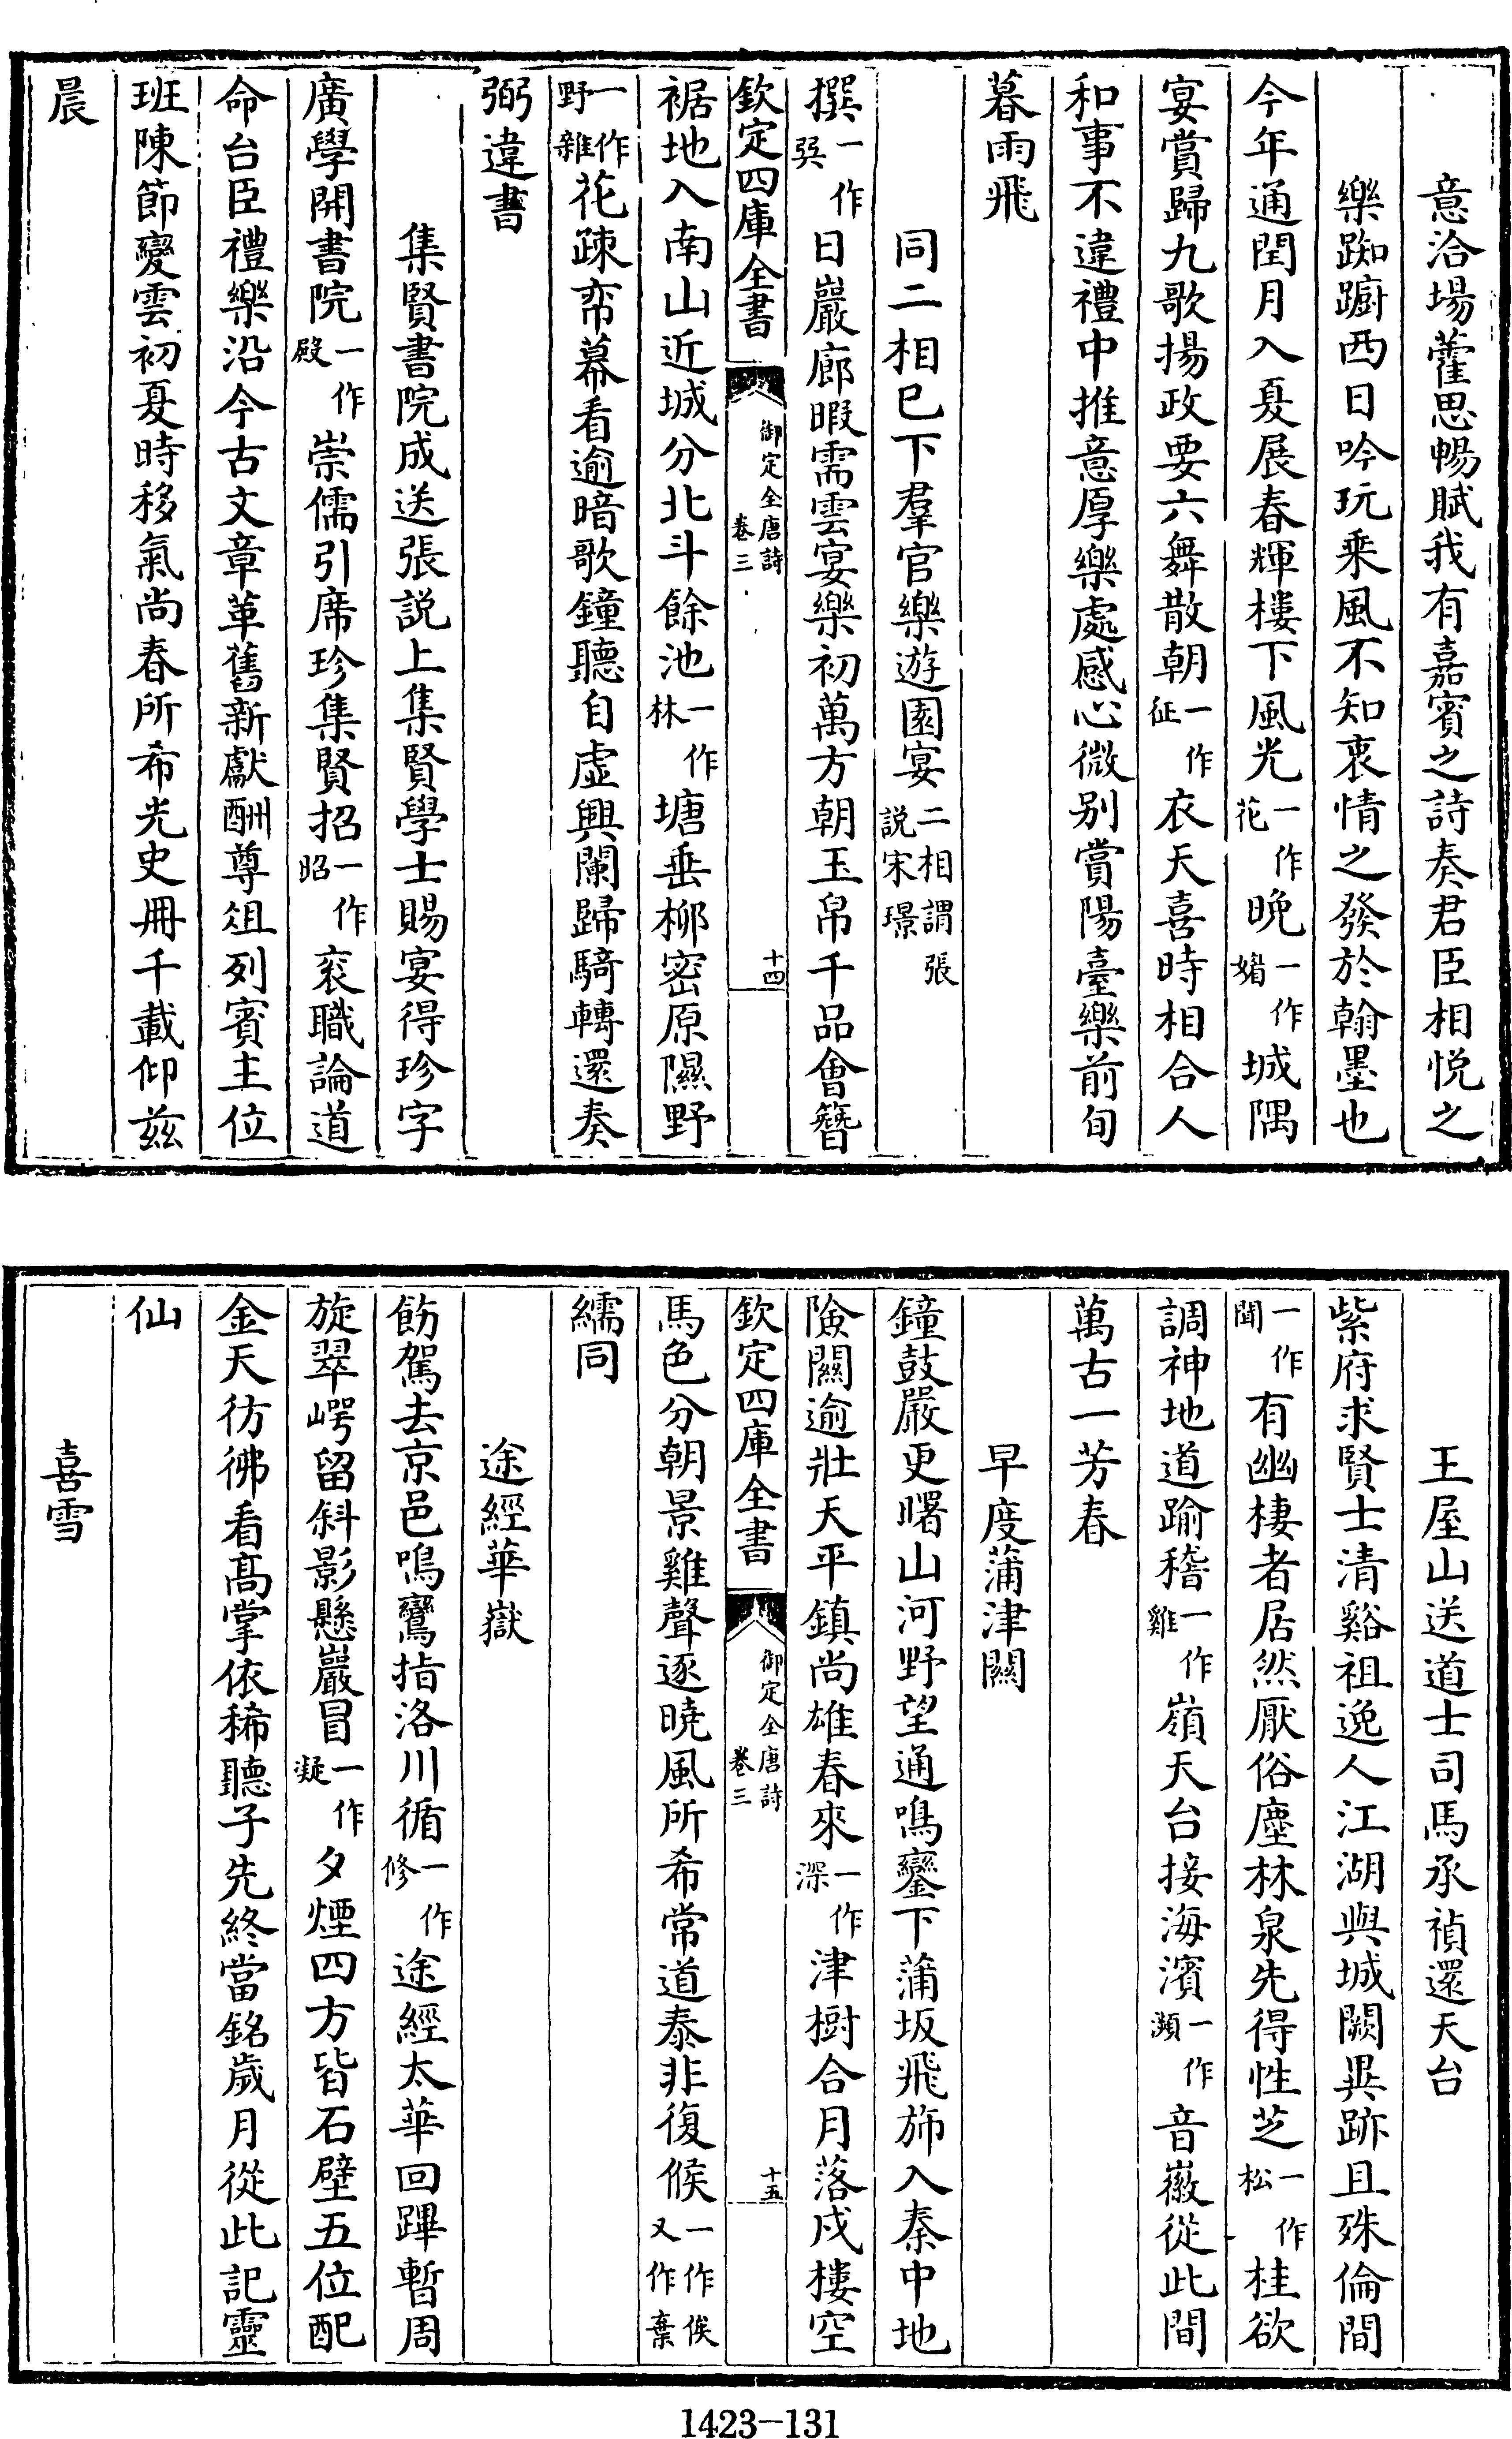 意洽場藿思暢賦我有嘉賓之詩奏君臣相悅之
樂踟躕西日吟玩乘風不知衷情之發於翰墨也
今年通閏月入夏展春輝樓下風光一作花晩一作媚城隅
宴賞歸九歌揚政要六舞散朝一作征衣天喜時相合人
和事不違禮中推意厚樂處感心微别賞陽臺樂前旬
暮雨飛
同二相已下羣官樂遊園宴二相謂張說宋璟
撰一作㢲日巖廊暇需雲宴樂初萬方朝玉帛千品㑹簪
欽定四庫全書
御定全唐詩
卷三
十四
裾地入南山近城分北斗餘池一作林塘垂柳密原隰野
一作野雜花疎帟幕看逾暗歌鐘聽自虚興闌歸騎轉還奏
弼違書
集賢書院成送張説上集賢學士賜宴得珍字
廣學開書院一作殿崇儒引席珍集賢招一作昭衮職論道
命台臣禮樂沿今古文章革舊新獻酬尊俎列賓主位
班陳節變雲初夏時移氣尚春所希光史冊千載仰兹
晨
王屋山送道士司馬承禎還天台
紫府求賢士清谿祖逸人江湖與城闕異跡且殊倫間
一作聞有幽棲者居然厭俗塵林泉先得性芝一作松桂欲
調神地道踰稽一作雞嶺天台接海濱一作瀕音徽從此間
萬古一芳春
早度蒲津關
鐘鼓嚴更曙山河野望通鳴鑾下蒲坂飛斾入秦中地
險關逾壯天平鎮尚雄春來一作深津樹合月落戍樓空
欽定四庫全書
御定全唐詩
卷三
十五
馬色分朝景雞聲逐曉風所希常道泰非復候一作俟又作棄
繻同
途經華嶽
飭駕去京邑鳴鸞指洛川循一作修途經太華回蹕暫周
旋翠崿留斜影懸巖冒一作凝夕煙四方皆石壁五位配
金天彷彿看髙掌依稀聽子先終當銘歲月從此記靈
仙
喜雪
1423-131